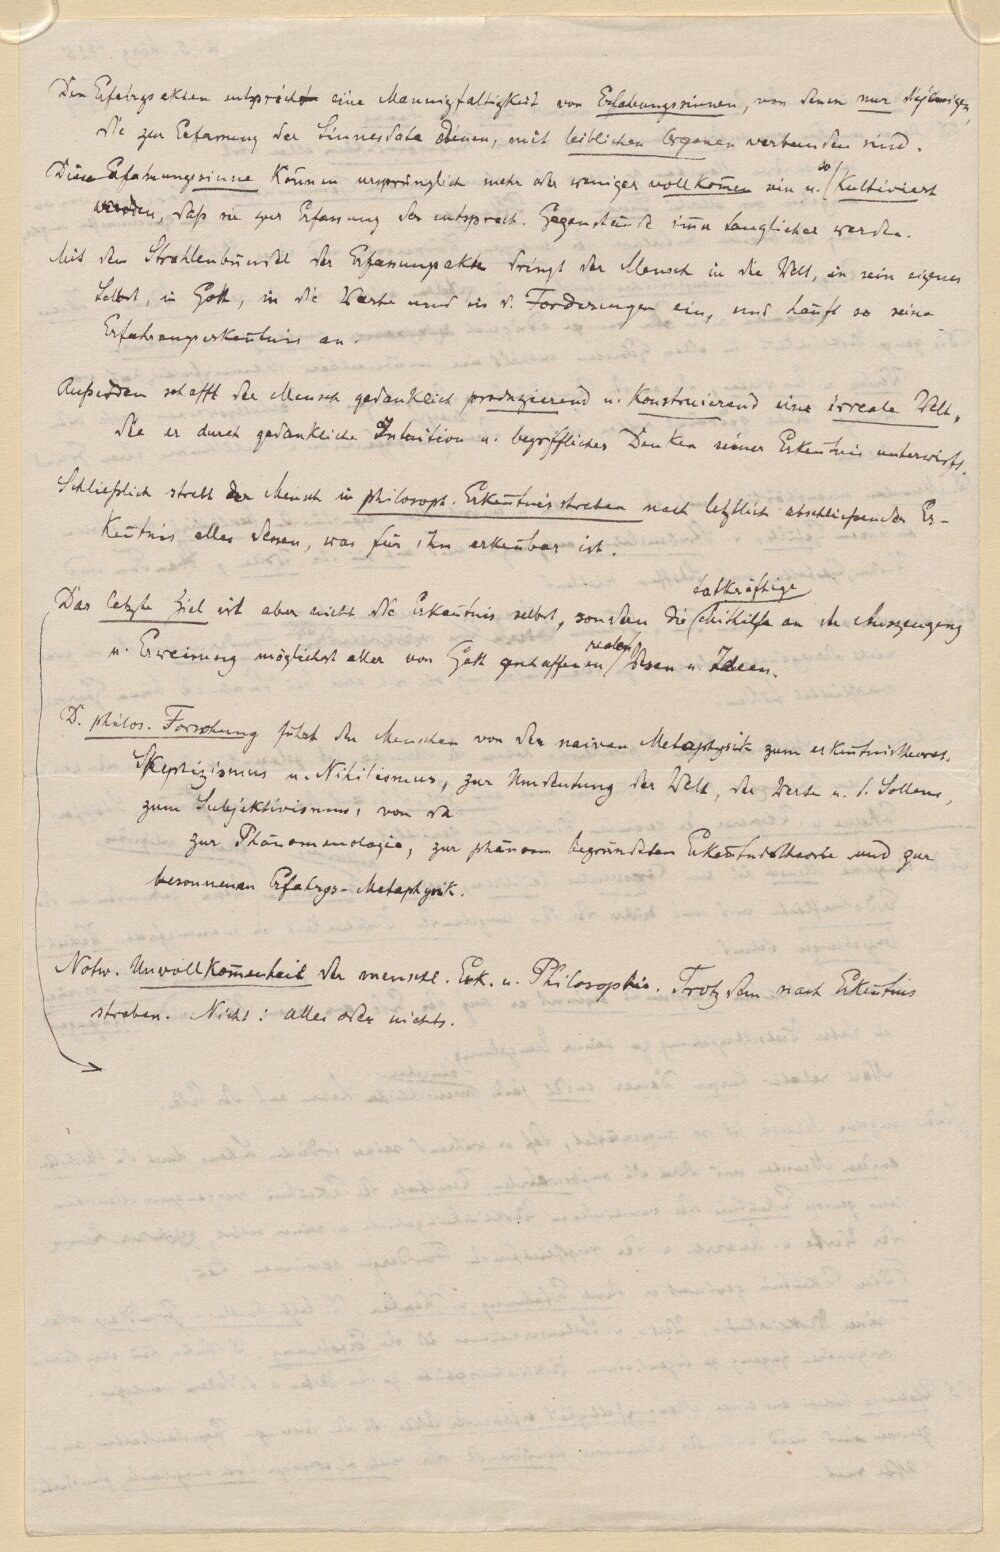 Den Erfahrgsakten entspricht eine Mannigfaltigkeit von Erfahrungssinnen, von denen nur diejenigen,
die zur Erfassung der Sinnesdata dienen, mit leiblichen Organen verbunden sind.
Diese Erfahrungssinne können ursprünglich mehr oder weniger vollkom̄en sein u. so kultiviert
werden, daß sie zur Erfassung der entsprech. Gegenstände im̄er tauglicher werden.
Mit dem Strahlenbündel der Erfassungsakte dringt der Mensch in die Welt, in sein eigenes
Selbst, in Gott, in die Werte und in d. Forderungen ein, und häuft so seine
Erfahrungserken̄tnis an.
Außerdem schafft der Mensch gedanklich produzierend u. konstruierend eine irreale Welt,
die er durch gedankliche Intuition u. begriffliches Denken seiner Erken̄tnis unterwirft.
Schließlich strebt der Mensch in philosoph. Erken̄tnisstreben nach letztlich abschließender Er-
ken̄tnis alles dessen, was für ihn erken̄bar ist.
Das letzte Ziel ist aber nicht die Erken̄tnis selbst, sondern die tatkräftige Mithilfe an der Auszeugung
u. Erweisung möglichst aller von Gott geschaffenen realen Wesen u. Ideen.
D. philos. Forschung führt den Menschen von der naiven Metaphysik zum erken̄tnistheoret.
Skeptizismus u. Nihilismus, zur Umdeutung der Welt, der Werte u. d. Sollens,
zum Subjektivismus, von da
zur Phänomenologie, zur phänom begründeten Erken̄tnistheorie und zur
besonnenen Erfahrgs-Metaphysik.
Notw. Unvollkom̄enheit der menschl. Erk. u. Philosophie. Trotzdem nach Erken̄tnis
streben. Nicht: alles oder nichts.